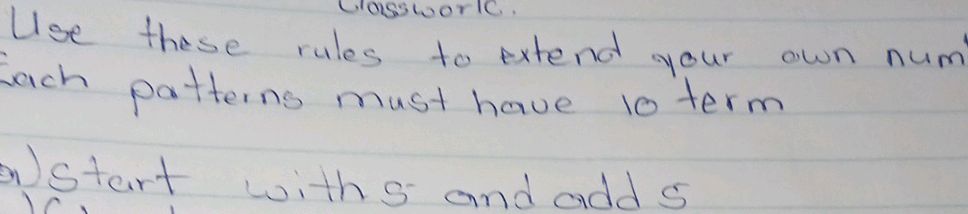 Classwork.
Use these rules to extend your own num
Each patterns must have 10 term
a) start with 5 and add 5